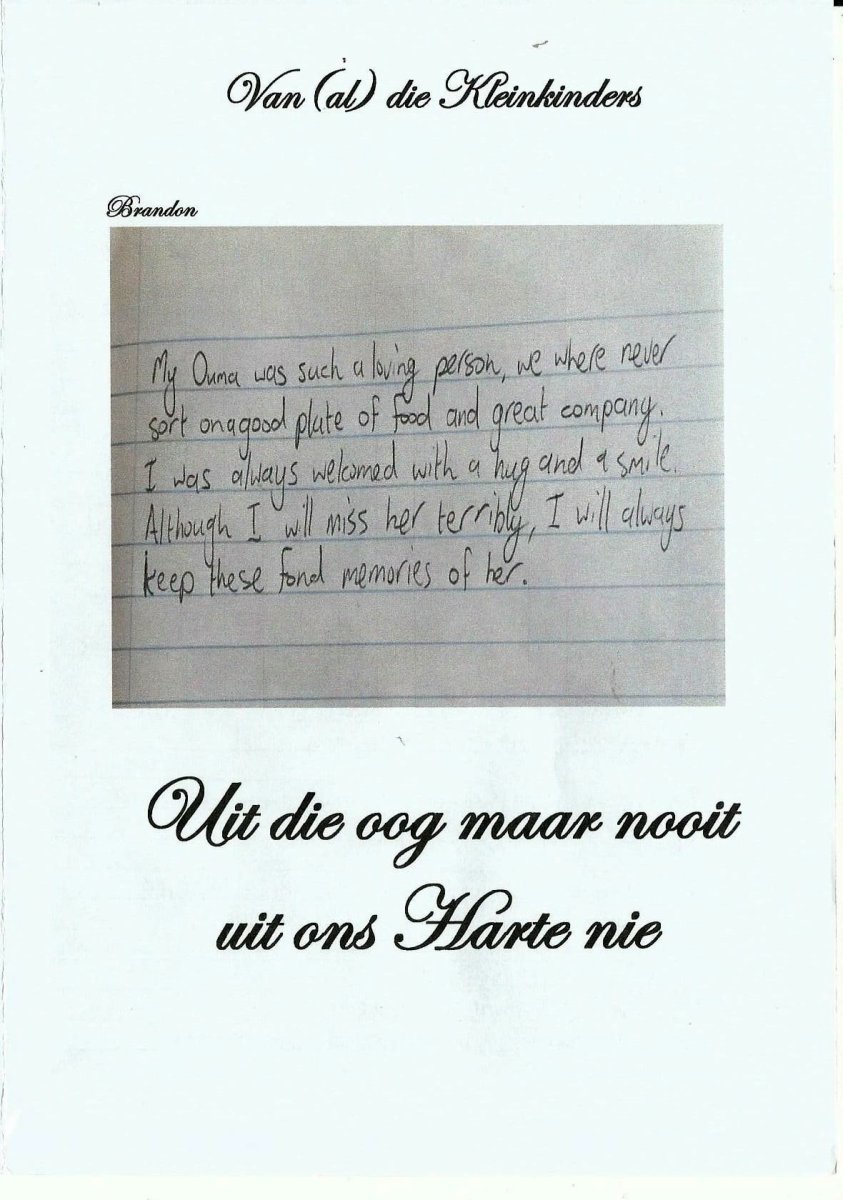 Van (al) die Kleinkinders
Brandon
My Ouma was such a loving person, we where never
sort on a good plate of food and great company.
I was always welcomed with a hug and a smile.
Although I will miss her terribly, I will always
keep these fond memories of her.
Uit die oog maar nooit
uit ons Harte nie